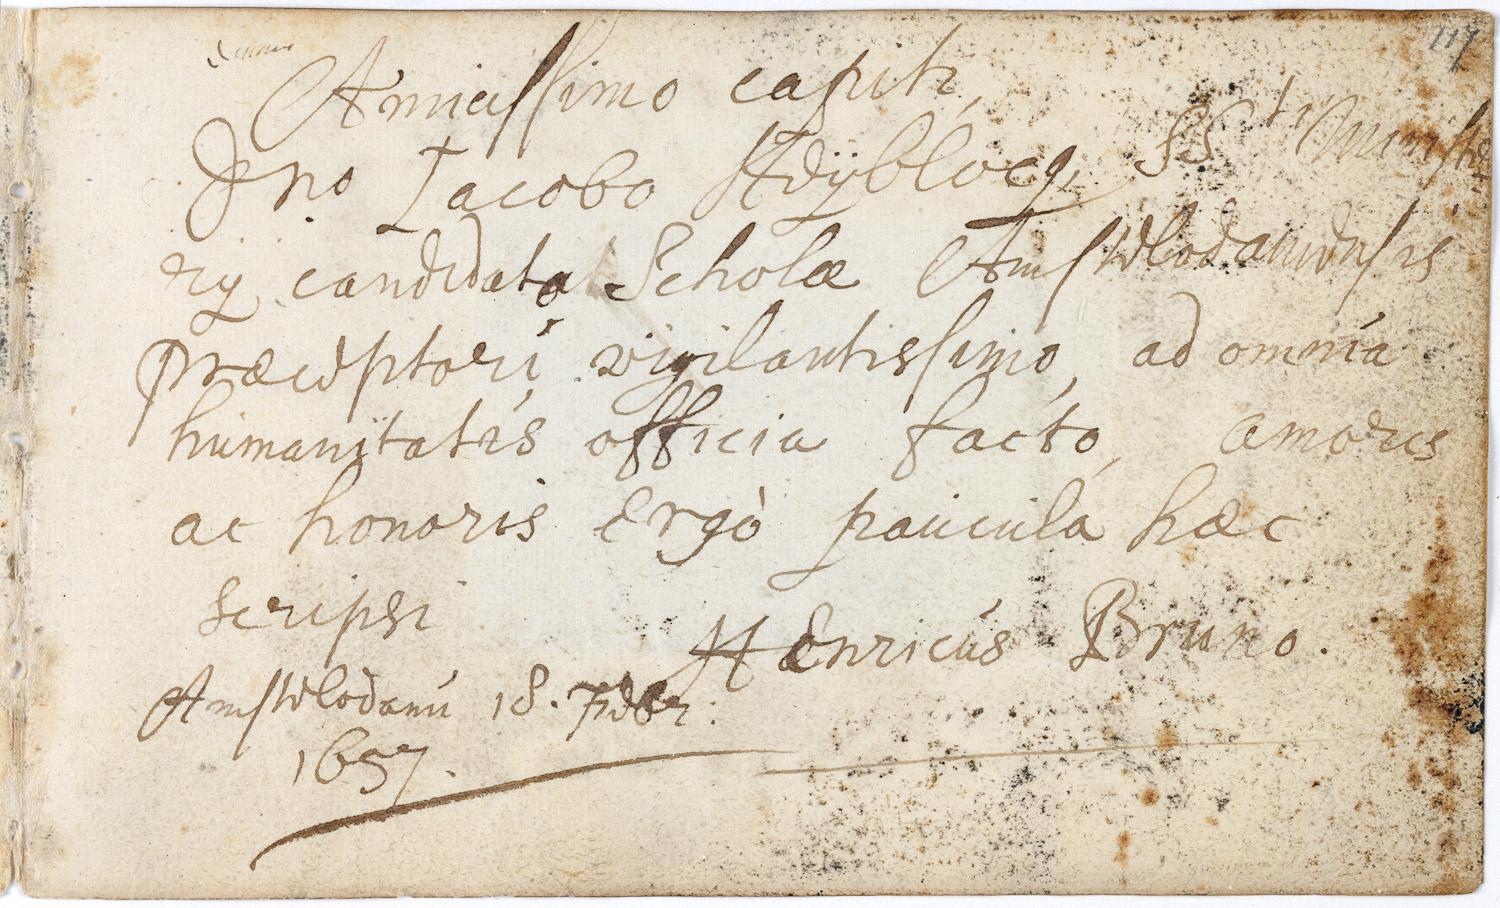 117
Amicissimo capiti,
Dno Jacobo Heÿblocq, SS ti Ministe
rij candidato, Scholæ Amstelodamensis
præceptori vigilantissimo, ad omnia
humanitatis officia facto, amoris
ac honoris ergò paucula hæc
scripsi
Henricus Bruno.
Amstelodami 18.
1657.